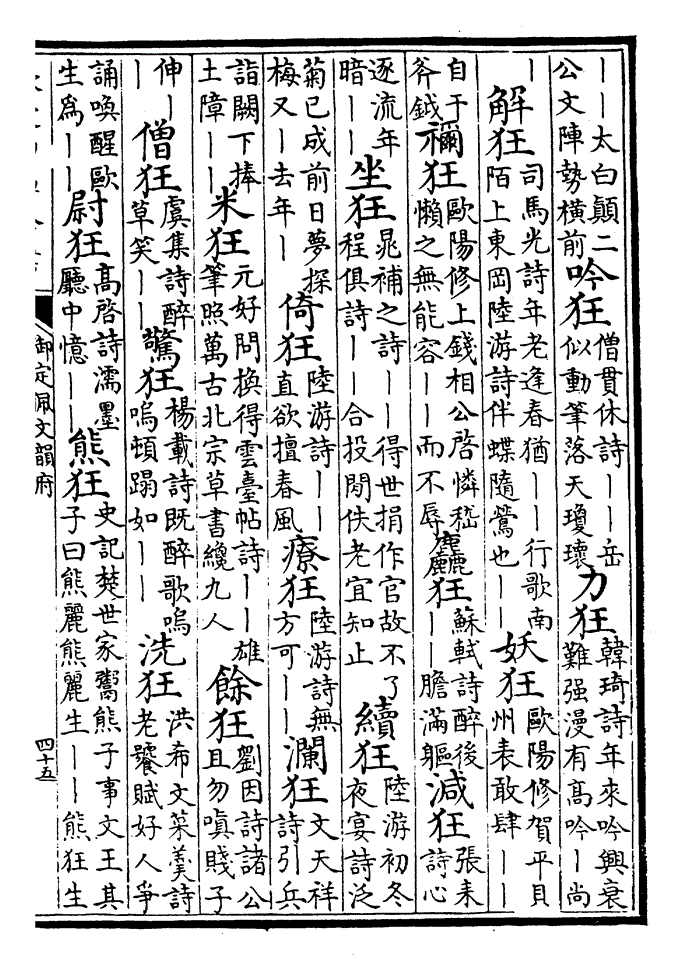 ｜｜太白顛二公文陣勢橫前吟狂僧貫休詩｜｜岳似動筆落天瓊瓌力狂韓琦詩年來吟興衰難强漫有高吟｜尚
｜解狂司馬光詩年老逢春猶｜｜行歌南陌上東岡陸游詩伴蝶隨鶯也｜｜妖狂歐陽修賀平貝州表敢肆｜｜
自于斧鉞禰狂歐陽修上錢相公啓憐嵇懶之無能容｜｜而不辱麤狂蘇軾詩醉後｜｜膽滿軀減狂張耒詩心
逐流年暗｜｜坐狂晁補之詩｜｜得世捐作官故不了程俱詩｜｜合投閒佚老宜知止續狂陸游初冬夜宴詩泛
菊已成前日夢探梅又｜去年｜倚狂陸游詩｜｜直欲擅春風療狂陸游詩無方可｜｜瀾狂文天祥詩引兵
詣闕下捧土障｜｜米狂元好問換得雲臺帖詩｜｜雄筆照萬古北宗草書纔九人餘狂劉因詩諸公且勿嗔賤子
伸｜｜僧狂虞集詩醉草笑｜｜驚狂楊載詩既醉歌嗚嗚頓蹋如｜｜洗狂洪希文菜羹詩老饕賦好人爭
誦喚醒歐生爲｜｜尉狂高啓詩濡墨廳中憶｜｜熊狂史記楚世家鬻熊子事文王其子曰熊麗熊麗生｜｜熊狂生
御定佩文韻府
四十五